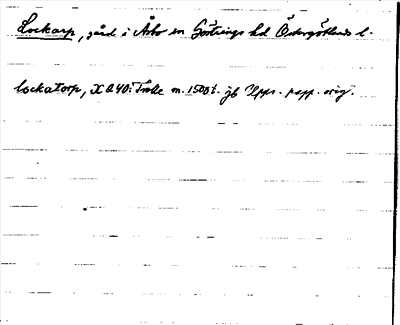 Lockarp, gård i Åsbo sn Göstrings hd Östergötlands l.
Lockatorp, X 240: Trolle m. 1500 t. jb Upps. papp. orig.